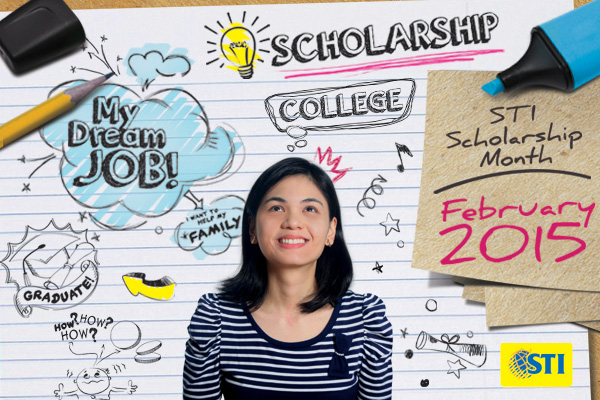 SCHOLARSHIP
COLLEGE
My
Dream
JOB!
I WANT TO
HELP MY
FAMILY
GRADUATE!
HOW? HOW?
HOW?
STI
Scholarship
Month
February
2015
STI